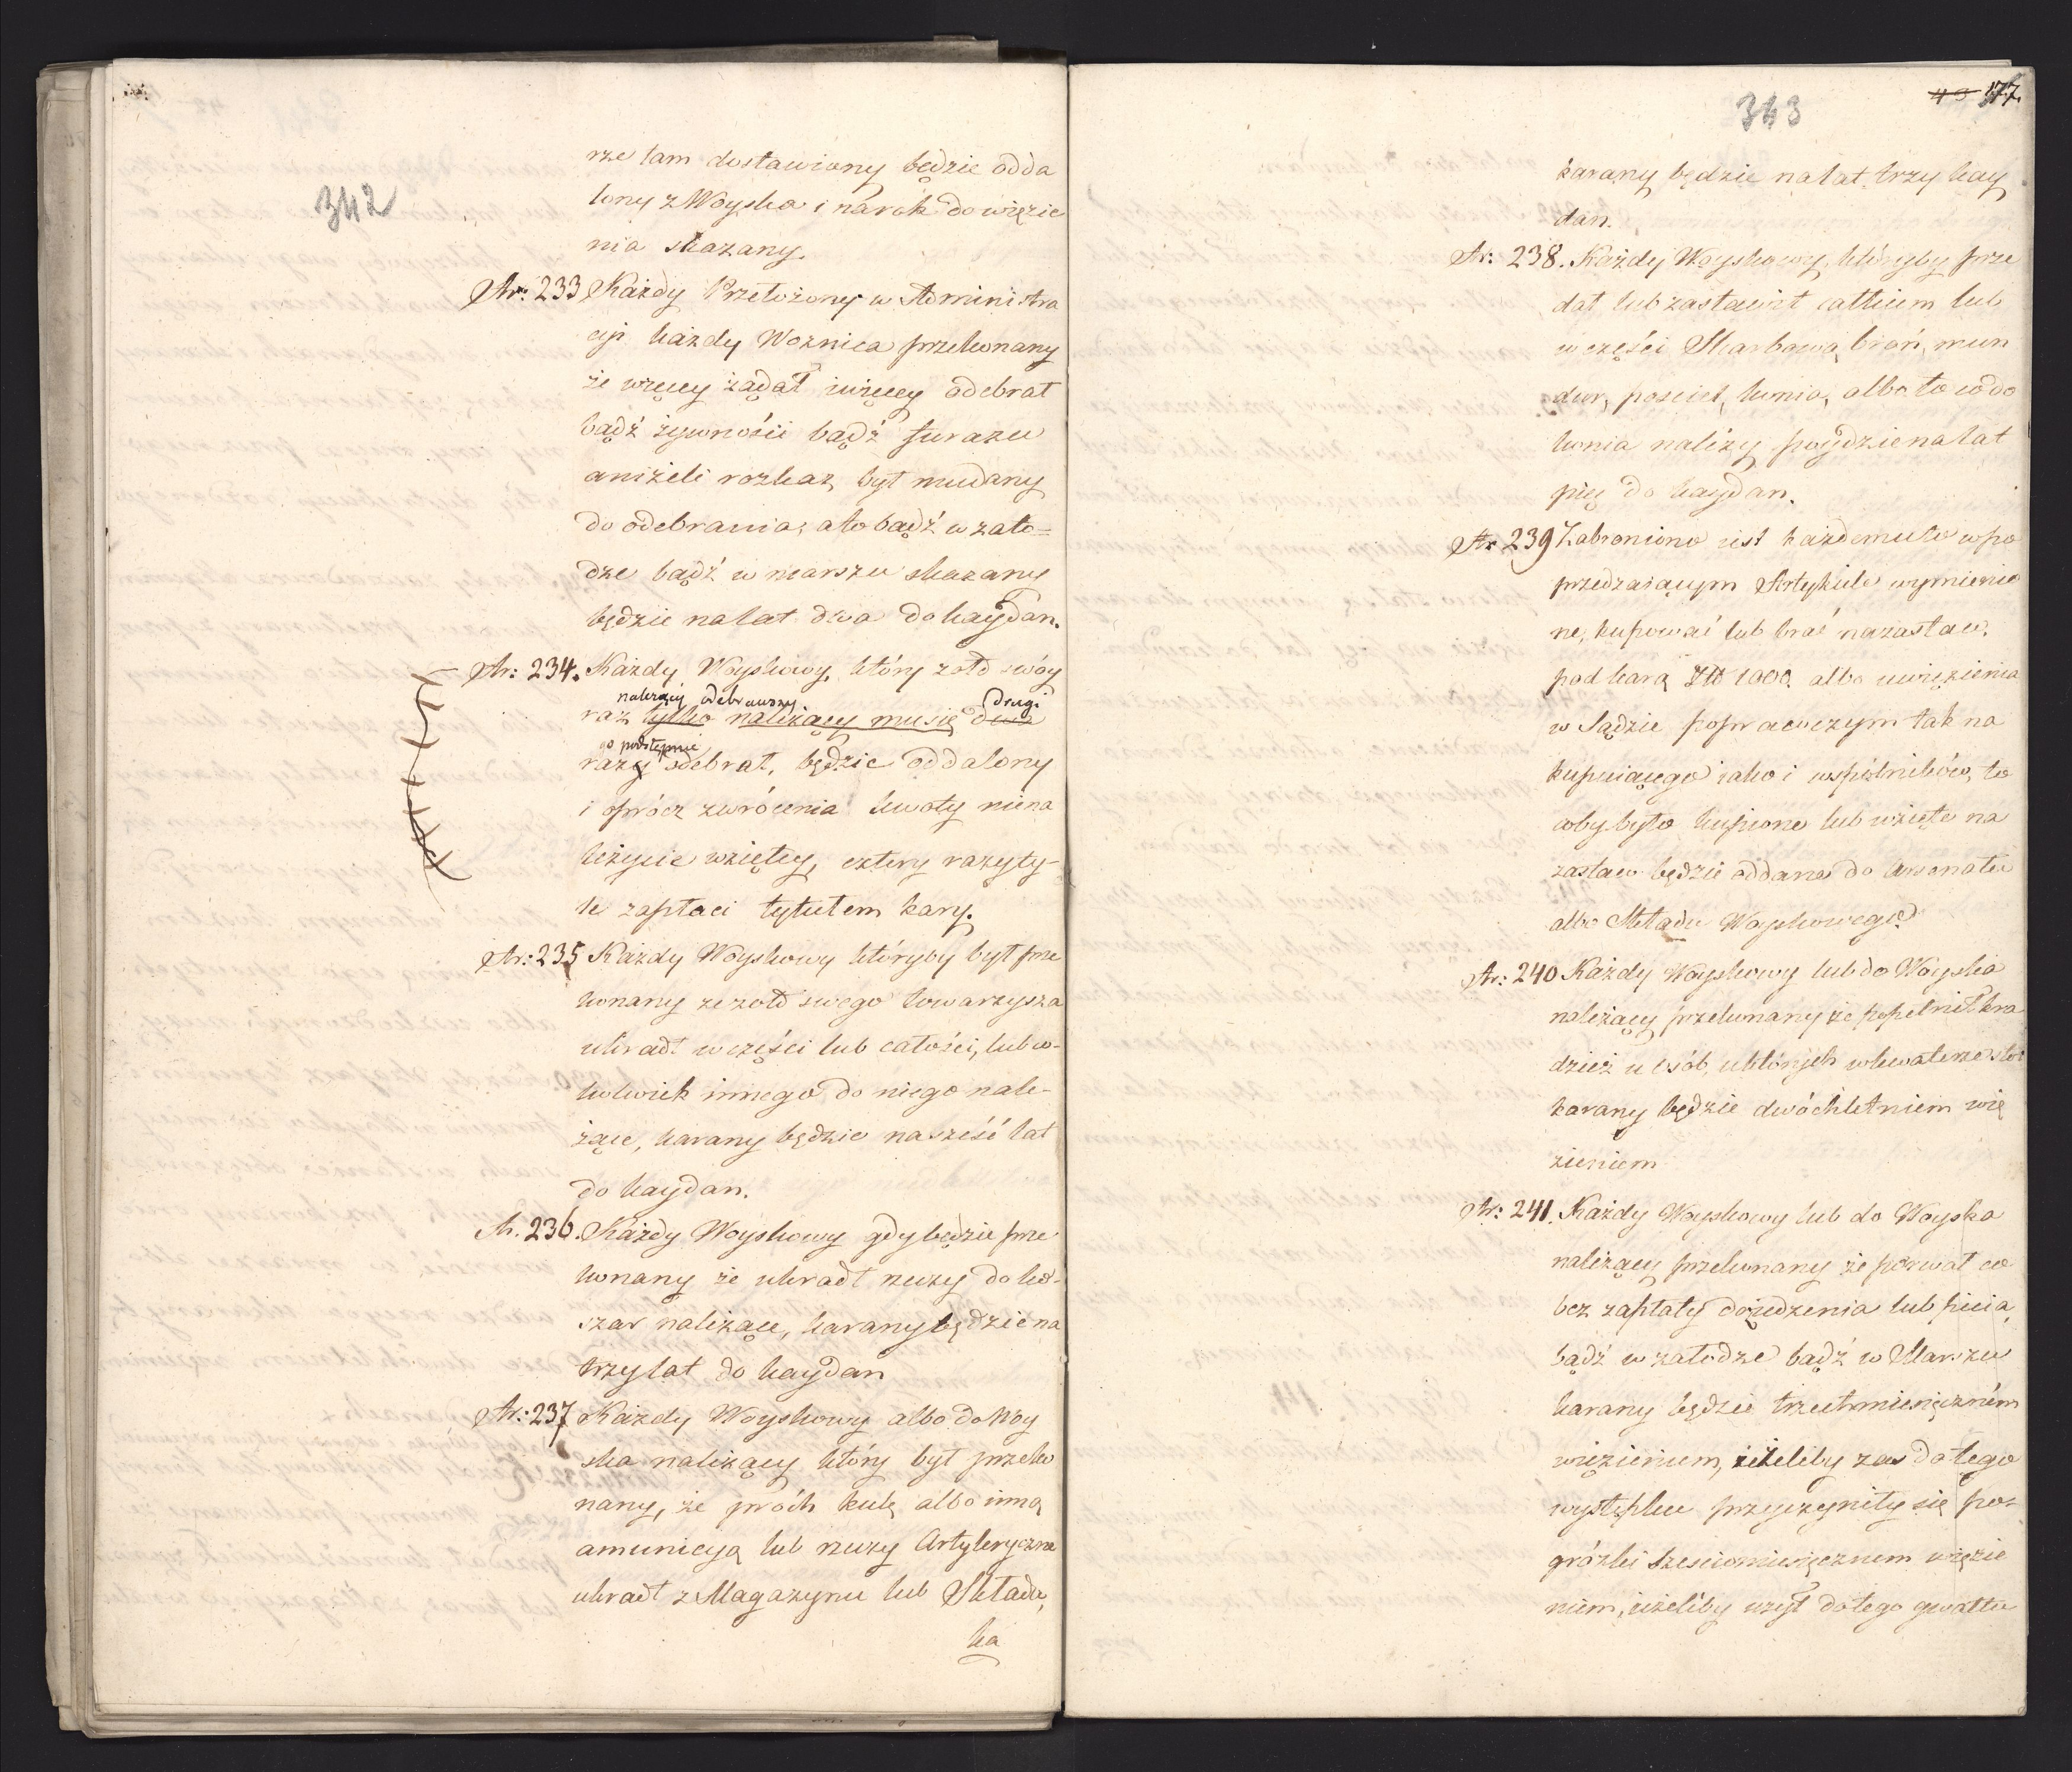 342
rze tam dostawiony będzie odda
lony z Woyska i na rok do więzie
nia skazany.
Ar: 233 Każdy Przełożony w Administra
cyi każdy Woznica przekonany
że więcey żądał i więcey odebrał
bądź żywności bądź furażu
aniżeli rozkaz był mu dany
do odebrania, a to bądź w zało=
dze bądź w marszu skazany
będzie na lat dwa do kaydan.
Ar: 234. Każdy Woyskowy, który żołd swóy
należący odebrawszy drugi
raz tylko należący mu się dwa
go podstępnie
razy odebrał, będzie oddalony
i oprócz zwrócenia kwoty niena
leżycie wziętey, cztery razy ty-
le zapłaci tytułem kary.
Ar: 235 Każdy Woyskowy któryby był prze
konany że żołd swego towarzysza
ukradł w części lub całości, lub co-
kolwiek innego do niego nale-
żące, karany będzie na sześć lat
do kaydan.
Ar. 236. Każdy Woyskowy gdy będzie prze
konany że ukradł rzeczy do ko-
szar należące, karany będzie na
trzy lat do kaydan
Ar: 237 Każdy Woyskowy albo do Woy
ska należący który był przeko
nany, że proch kulę albo inną
amunicyą lub rzeczy Artyleryczne
ukradł z Magazynu lub Składu,
ka
343
43 177.
karany będzie na lat trzy kay
dan.
Ar: 238. Każdy Woyskowy, któryby prze
dał lub zastawił całkiem lub
w części Skarbową broń, mun
dur, pościel, konia, albo to co do
konia należy poydzie na lat
pięć do kaydan.
Ar 239 Zabroniono iest każdemu to w po
przedzaiącym Artykule wymienio
ne, kupować lub brać na zastaw.
pod karą Złł 1000. albo uwięzienia
w Sądzie poprawczym tak na
kupuiącego iako i wspólników, to
coby było kupione lub wzięte na
zastaw będzie oddane do Arsenału
albo Składu Woyskowego.
Ar: 240 Każdy Woyskowy lub do Woyska
należący przekonany że popełnił kra
dzież u osób, u których w kwaterze stoi
karany będzie dwóchletniem wię
zieniem
Ar: 241. Każdy Woyskowy lub do Woyska
należący przekonany że porwał co
bez zapłaty do iedzenia lub picia,
bądź w załodze bądź w Marszu
karany będzie trzechmiesięczném
więzieniem, ieżeliby zaś do tego
występku przyczyniły się po=
gróżki sześciomiesięcznem więzie
niem, ieżeliby użył do tego gwałtu